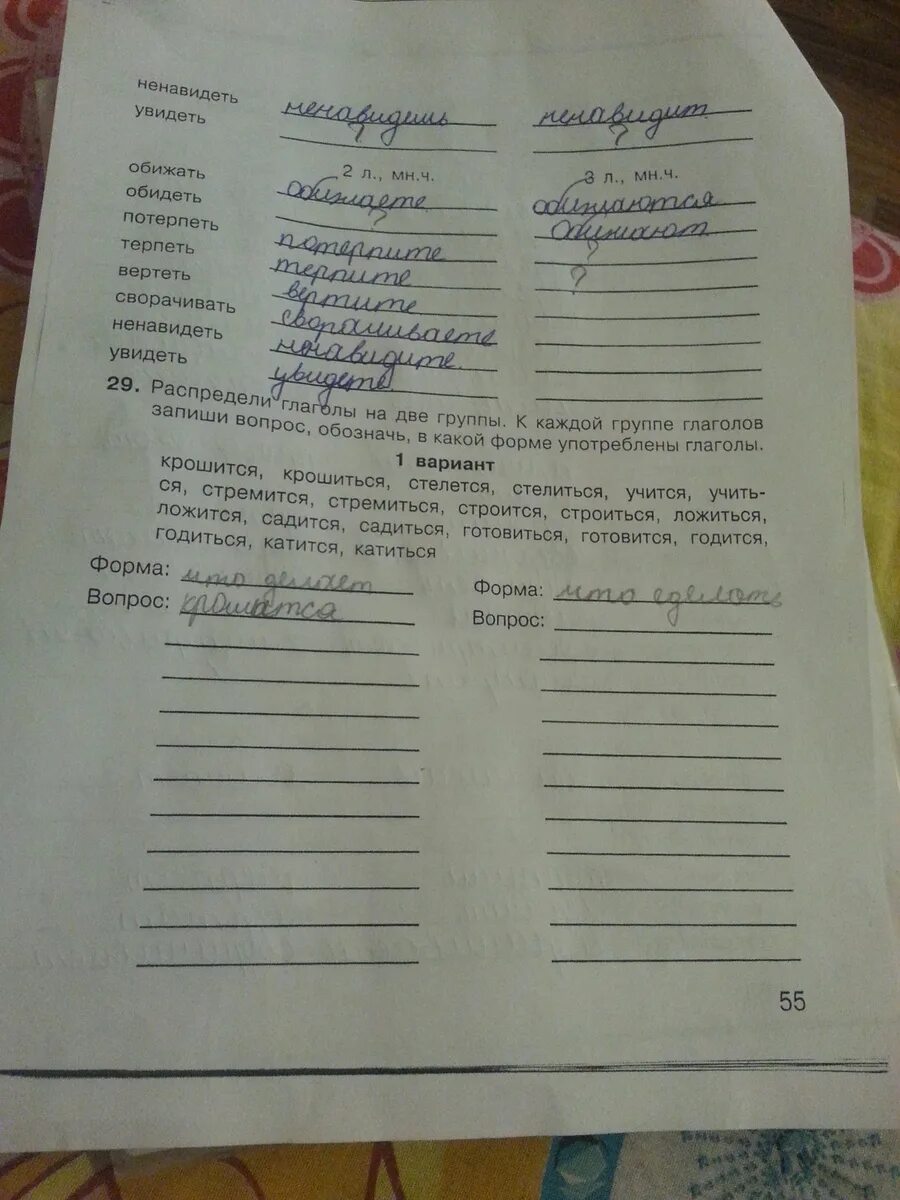 ненавидеть
увидеть ненавидешь ненавидит
? ?
обижать 2 л., мн.ч. 3 л., мн.ч.
обидеть обижаете обижаются
потерпеть ? обижают
терпеть потерпите ?
вертеть терпите ?
сворачивать вертите
ненавидеть сворашиваете
увидеть ненавидите
увидете
29. Распредели глаголы на две группы. К каждой группе глаголов
запиши вопрос, обозначь, в какой форме употреблены глаголы.
1 вариант
крошится, крошиться, стелется, стелиться, учится, учить-
ся, стремится, стремиться, строится, строиться, ложиться,
ложится, садится, садиться, готовиться, готовится, годится,
годиться, катится, катиться
Форма: что делает Форма: что сделать
Вопрос: крошатса Вопрос:
55